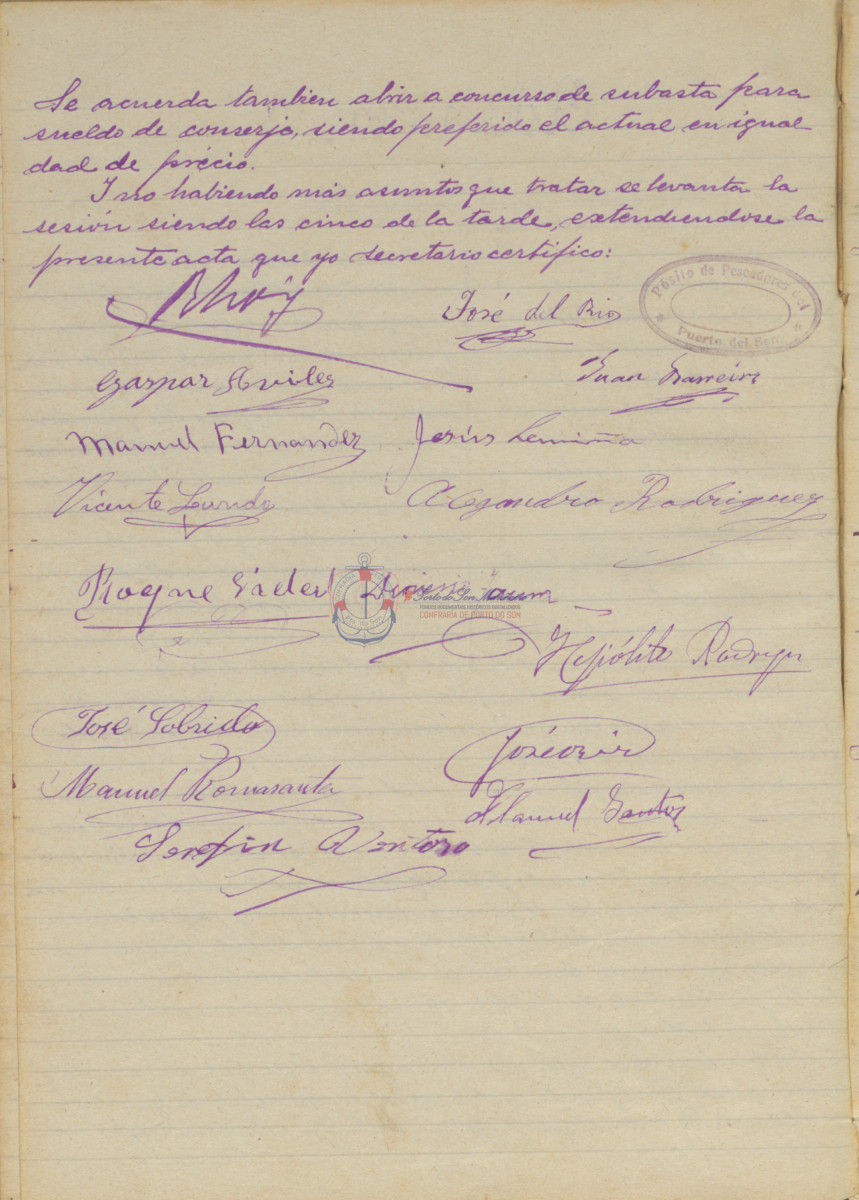 Se acuerda tambien abrir a concurso de subasta para
sueldo de conserje, siendo preferido el actual en igual
dad de précio.
Y no habiendo más asuntos que tratar se levanta la
sesión siendo las cinco de la tarde, extendiendose la
presente acta que yo secretario certifico:
José del Rio
Pósito de Pescadores del
Puerto del Son
Gaspar Aviles
Juan
Manuel Fernandez
Jesús
Vicente
Alejandro Rodriguez
Roque
Porto do Son
CONFRARÍA DE PORTO DO SON
Hipólito
José Sobrido
José
Manuel Romasanta
Manuel Santos
Serafin